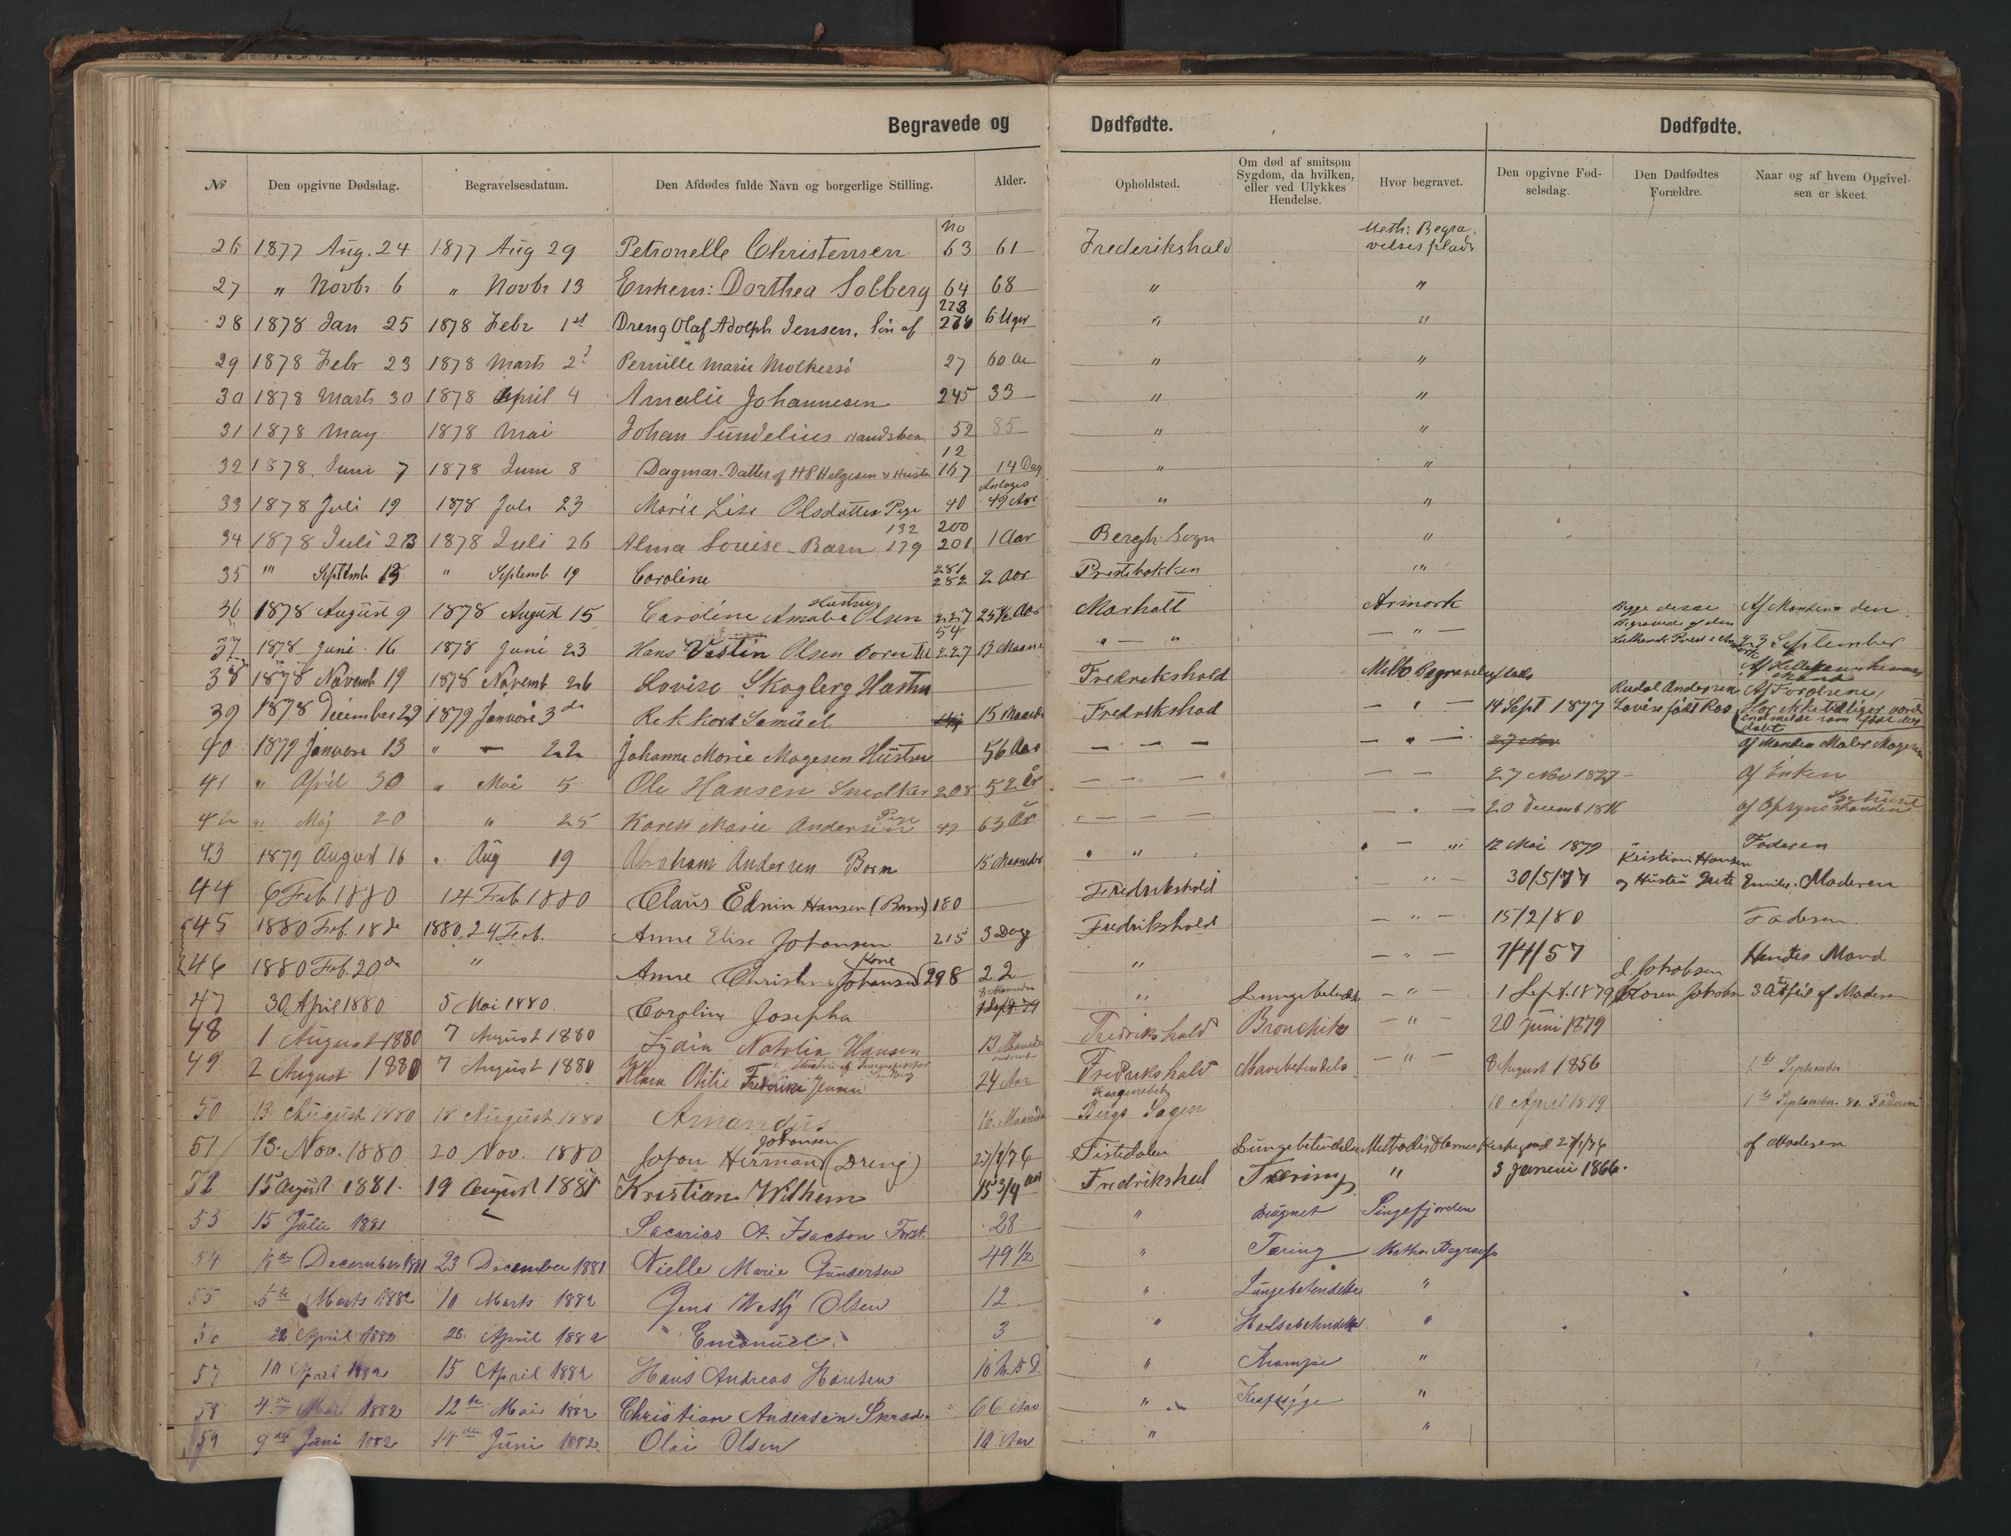 Begravede og Dødfødte. Dødfødte.
№ Den opgivne Dødsdag. Begravelsesdatum. Den Afdødes fulde Navn og borgerlige Stilling. Alder. Opholdsted. Om død af smitsom Sygdom, da hvilken, eller ved Ulykkes Hendelse. Hvor begravet. Den opgivne Fødselsdag. Den Dødfødtes Forældre. Naar og af hvem Opgivelsen er skeet.
26 1877 Aug. 24 1877 Aug 29 Petronelle Christensen No 63 61 Frederikshald Meth: Begravelsesplads
27 " Novbr 6 " Novbr 13 Enkens: Dorthea Solberg 64 68 " "
28 1878 Jan 25 1878 Febr 1st Dreng Olaf Adolph Jensen. Søn af 273 276 6 Uger " "
29 1878 Febr 23 1878 Marts 2 Pernille Marie 27 60 Aar " "
30 1878 Marts 30 1878 April 4 Amalie Johannesen 245 33 " "
31 1878 May 1878 Mai Johan Sundelius 52 85 " "
32 1878 Juni 7 1878 Juni 8 Dagmar. Datter af H P Helgesen & Hustru 12 167 14 Dag " "
33 1878 Juli 19 1878 Juli 23 Marie Lise Olsdatter Pige 40 49 Aar " "
34 1878 Juli 23 1878 Juli 26 Alma Louise - Barn 132 179 200 201 1 Aar Bergh. Sogn "
35 " Septemb 15 " Septemb 19 Caroline 281 282 2 Aar Prestebakken "
36 1878 August 9 1878 August 15 Caroline Olsen Hustru 227 25½ Aar Marholt Armork Begge disse Begravede af den Af Manden den
37 1878 Juni 16 1878 Juni 23 Hans Olsen 54 227 13 Maane " — " — " — 23 September
38 1878 Novemb 19 1878 Novemb 26 Lovise Skogberg Hustru — — Fredrikshold
39 1878 December 29 1879 Januari 3de Rekkord Samuel 15 Maaneder Fredrikshad — " — 14 Sept 1877 Andersen Lovise født Af Forældrene
40 1879 Januari 13 " — 22 Johanne Marie Mogesen Hustru 56 Aar — — — — " — Af Manden Maler Mogesen
41 " April 30 " Mai 5 Ole Hansen Snedker 208 52 År — — — — — 27 Nov 1827 Af Enken
42 " Maj 20 " 25 Karen Marie Andersen Pige 49 63 År — — — — " — 20 december 18
43 1879 August 16 " Aug 19 Abraham Andersen Barn 15 Maaneder " " " — " 12 Mai 1879 Faderen
44 6 Feb 1880 14 Feb 1880 Claus Edvin Hansen (Barn) 180 — Fredrikshold " — 30/5/77 Kristian Hansen og Hustru Moderen
45 1880 Feb. 18de 1880. 24 Feb. Anne Elise Johansen 215 3 Dage Fredrikshold — " — 15/2/80 Faderen
46 1880 Feb. 20de " Anne Christine Johansen Kone 298 22 " — " — 14/57 Hendes Mand
47 30 April 1880 5 Mai 1880. Caroline Josepha 8 Maaneder " Lungebetendelse — " — 1 Sept. 1879 J. Jakobsen Karen Jakobsen 30te April af Moderen
48 1 August 1880 7 August 1880 Lydia Natalia Hansen 13 Maaneder Fredrikshald Bronchitis — " — 20 Juni 1879
49 2 August 1880 7 August 1880 Otilie Fredrike Jensen 24 Aar Fredrikshald Mavebetendelse — " — 8 August 1856 1ste September
50 13 August 1880 18 August 1880 Amandus 16 Maaneder Bergs Sogn 10 April 1879 1ste September 80 Faderen
51 13. Nov. 1880 20 Nov. 1880 Johan Herman Johansen (Dreng) 27/1/76 Tistedalen Lungebetendelse Methodisternes Kirkegård 27/1/76 af Moderen
52 15 August 1881. 19 August 1881 Kristian Wilhem 15 3/4 aar Fredrikshad Tæring " 3 Januari 1866.
53 15 Julii 1881 Sacarias A. Isacson Forst. 28 " Druknet Singefjorden
54 18de December 1881 23 December 1881 Nielle Marie Gundersen 49 1/2 " Tæring Metho. Begravels
55 5te Marts 1882 10 Marts 1882 Jens Wesly Olsen 12 " Lungebetendelse "
56 22 April 1882 26 April 1882 Emanuel 3 " Halsebetendelse "
57 10 April 1882 15 April 1882 Hans Andreas Hansen 10 M. 15 D. " Krampe "
58 4de Mai 1882 12te Mai 1882 Christian Andersen Skræd. 66 Aar " Kræftsyge "
59 9de Juni 1882 14de Juni 1882 Olai Olsen 10 Aar " "